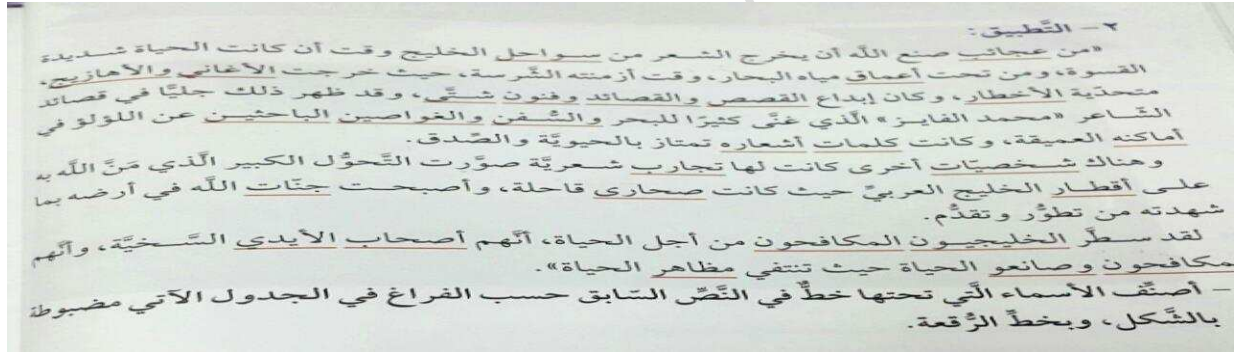 ٢ – التَّطبيق:
«من عجائب صنع الله أن يخرج الشعر من سواحل الخليج وقت أن كانت الحياة شديدة
القسوة، ومن تحت أعماق مياه البحار، وقت أزمنته الشَّرسة، حيث خرجت الأغاني والأهازيج،
متحدّية الأخطار، وكان إبداع القصص والقصائد وفنون شتَّى، وقد ظهر ذلك جليًّا في قصائد
الشَّاعر «محمد الفايز» الَّذي غنَّى كثيرًا للبحر والسُّفن والغواصين الباحثين عن اللؤلؤ في
أماكنه العميقة، وكانت كلمات أشعاره تمتاز بالحيويَّة والصِّدق.
وهناك شخصيّات أخرى كانت لها تجارب شعريَّة صوَّرت التَّحوُّل الكبير الَّذي مَنَّ الله به
على أقطار الخليج العربيِّ حيث كانت صحارى قاحلة، وأصبحت جنَّات الله في أرضه بما
شهدته من تطوُّر وتقدُّم.
لقد سطَّر الخليجيون المكافحون من أجل الحياة، أنَّهم أصحاب الأيدي السَّخيَّة، وأنَّهم
مكافحون وصانعو الحياة حيث تنتفي مظاهر الحياة».
– أصنِّف الأسماء الَّتي تحتها خطٌّ في النَّصِّ السَّابق حسب الفراغ في الجدول الآتي مضبوطة
بالشَّكل، وبخطِّ الرُّقعة.